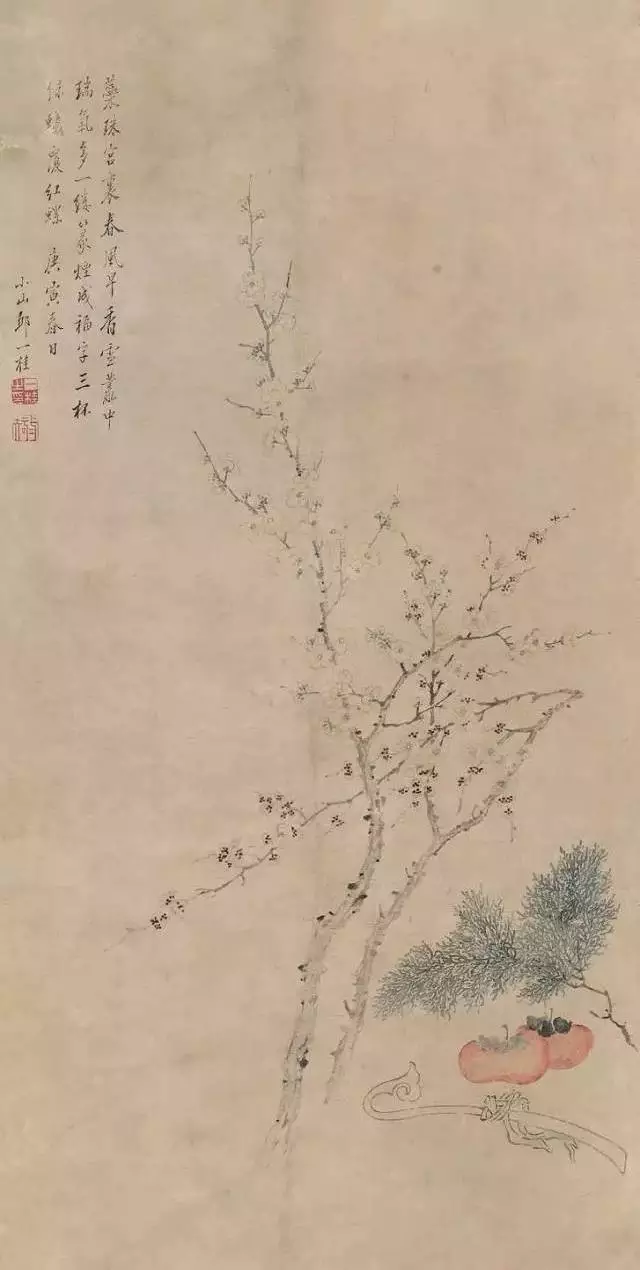 蘂珠宮裏春風早香雪叢中
瑞氣多一縷篆煙成福字三杯
綠蟻紅螺 庚寅春日
小山鄒一桂